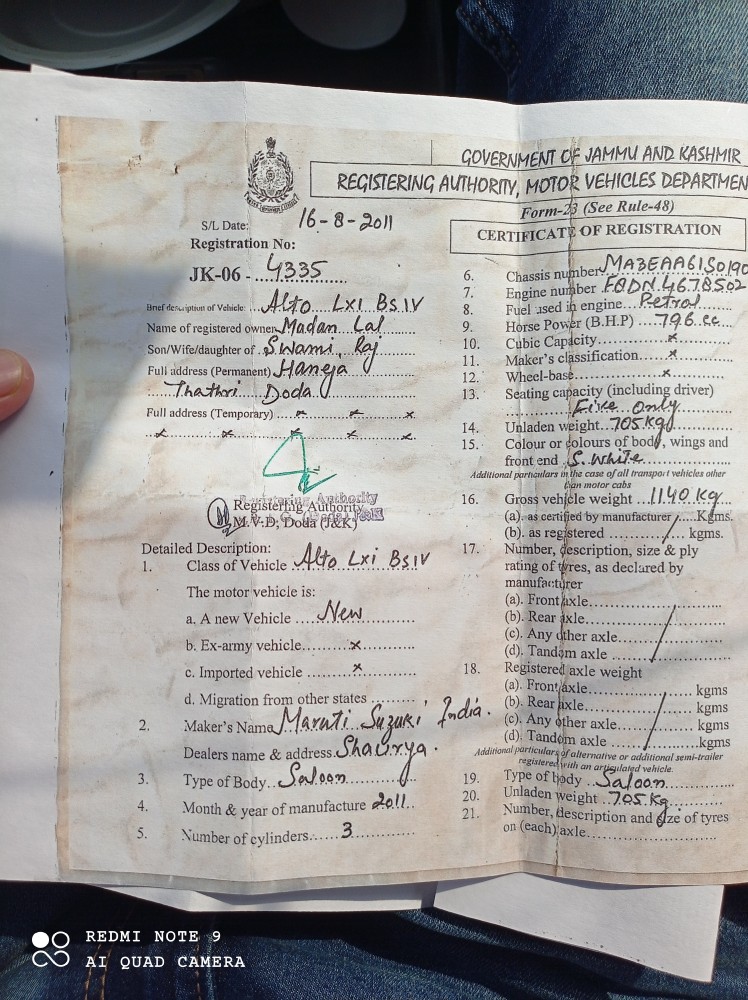 GOVERNMENT OF JAMMU AND KASHMIR
REGISTERING AUTHORITY, MOTOR VEHICLES DEPARTMEN
Form-23 (See Rule-48)
CERTIFICATE OF REGISTRATION
S/L Date: 16-8-2011
Registration No:
JK-06 - 4335
Brief description of Vehicle: Alto Lxi BsIV
Name of registered owner Madan Lal
Son/Wife/daughter of Swami Raj
Full address (Permanent) Haneja
Thathri Doda
Full address (Temporary) x x x
x x x x x
Registering Authority
Registering Authority
M.V.D, Doda (J&K)
Detailed Description:
1. Class of Vehicle Alto Lxi BsIV
The motor vehicle is:
a. A new Vehicle New
b. Ex-army vehicle x
c. Imported vehicle x
d. Migration from other states
2. Maker's Name Maruti Suzuki India.
Dealers name & address Shaurya.
3. Type of Body Saloon
4. Month & year of manufacture 2011
5. Number of cylinders 3
6. Chassis number MA3EAA61S0190
7. Engine number F8DN4678502
8. Fuel used in engine Petrol
9. Horse Power (B.H.P) 796 cc
10. Cubic Capacity x
11. Maker's classification x
12. Wheel-base x
13. Seating capacity (including driver)
Five Only
14. Unladen weight 705 Kg
15. Colour or colours of body, wings and
front end S. White
Additional particulars in the case of all transport vehicles other
than motor cabs
16. Gross vehicle weight 1140 Kg
(a). as certified by manufacturer Kgms.
(b). as registered kgms.
17. Number, description, size & ply
rating of tyres, as declared by
manufacturer
(a). Front axle
(b). Rear axle
(c). Any other axle
(d). Tandam axle
18. Registered axle weight
(a). Front axle kgms
(b). Rear axle kgms
(c). Any other axle kgms
(d). Tandom axle kgms
Additional particulars of alternative or additional semi-trailer
registered with an articulated vehicle.
19. Type of body Saloon
20. Unladen weight 705 Kg
21. Number, description and size of tyres
on (each) axle
REDMI NOTE 9
AI QUAD CAMERA